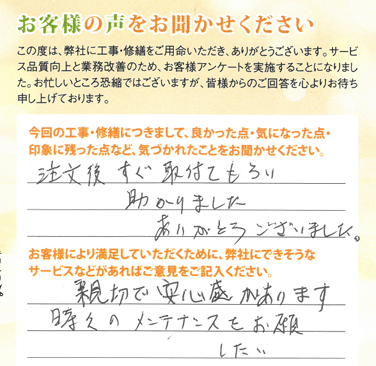 お客様の声をお聞かせください
この度は、弊社に工事・修繕をご用命いただき、ありがとうございます。サービ
ス品質向上と業務改善のため、お客様アンケートを実施することになりまし
た。お忙しいところ恐縮ではございますが、皆様からのご回答を心よりお待ち
申し上げております。
今回の工事・修繕につきまして、良かった点・気になった点・
印象に残った点など、気づかれたことをお聞かせください。
注文後すぐ取付てもらい
助かりました
ありがとうございました。
お客様により満足していただくために、弊社にできそうな
サービスなどがあればご意見をご記入ください。
親切で安心感があります
時々のメンテナンスをお願
したい